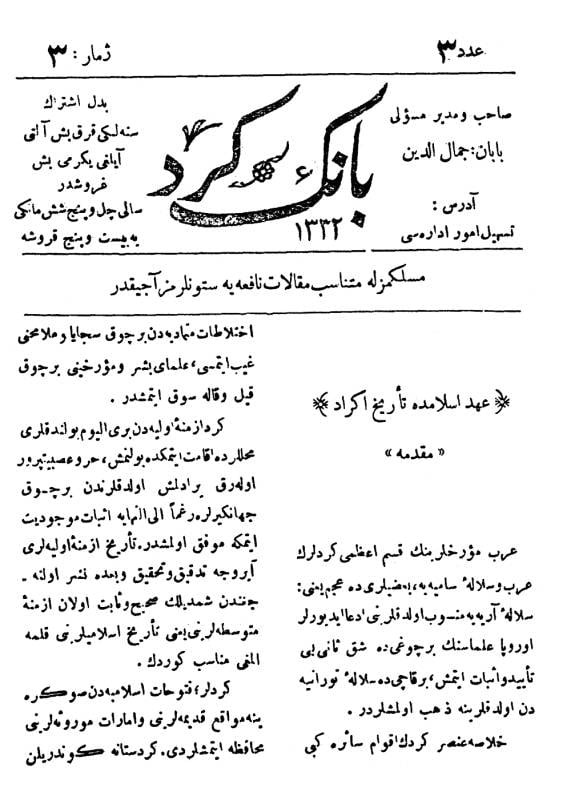 عدد ٣
ژمار : ٣
صاحب و مدیر مسؤلی
بابان : جمال الدین
آدرس :
تسهیل امور اداره سی
بانك كرد
١٣٣٢
بدل اشتراك
سنه لكی قرق بش آلتی
آیلغی یكرمی بش
غروشدر
سالی چل و پنج شش مانكی
به بیست و پنج قروشه
مسلكمزله متناسب مقالات نافعه یه ستونلرمز آچیقدر
﴿ عهد اسلامده تأریخ اكراد ﴾
« مقدمه »
عرب مؤرخلرینك قسم اعظمی كردلرك
عرب و سلالۀ سامیه یه، بعضیلری ده عجم یعنی :
سلالۀ آریه یه منسوب اولدقلرینی ادعا ایدیورلر
اوروپا علماسنك برچوغی ده شق ثانی یی
تأیید و اثبات ایتمش، برقاچی ده سلالۀ تورانیه
دن اولدقلرینه ذهب اولمشلردر .
خلاصه عنصر كردك اقوام سائره كبی
اختلاطات متمادیه دن برچوق سجایا و ملامحنی
غیب ایتمسی، علمای بشر و مؤرخینی برچوق
قیل وقاله سوق ایتمشدر .
كرد ازمنۀ اولیه دن بری الیوم بولندقلری
محللرده اقامت ایتمكده بولنمش، حر و عصبیتپرور
اوله رق یرادلمش اولدقلرندن برچوق
جهانكیرلره رغماً الی النهایه اثبات موجودیت
ایتمكه موفق اولمشدر. تأریخ ازمنۀ اولیه لری
آیروجه تدقیق و تحقیق و بعده نشر اولنه ـ
جغندن شمدیلك صحیح و ثابت اولان ازمنۀ
متوسطه لرینی یعنی تأریخ اسلامیلرینی قلمه
المغی مناسب كوردك .
كردلر؛ فتوحات اسلامیه دن صوكره
ینه مواقع قدیمه لرینی و امارات موروثه لرینی
محافظه ایتمشلردی. كردستانه كوندریلن